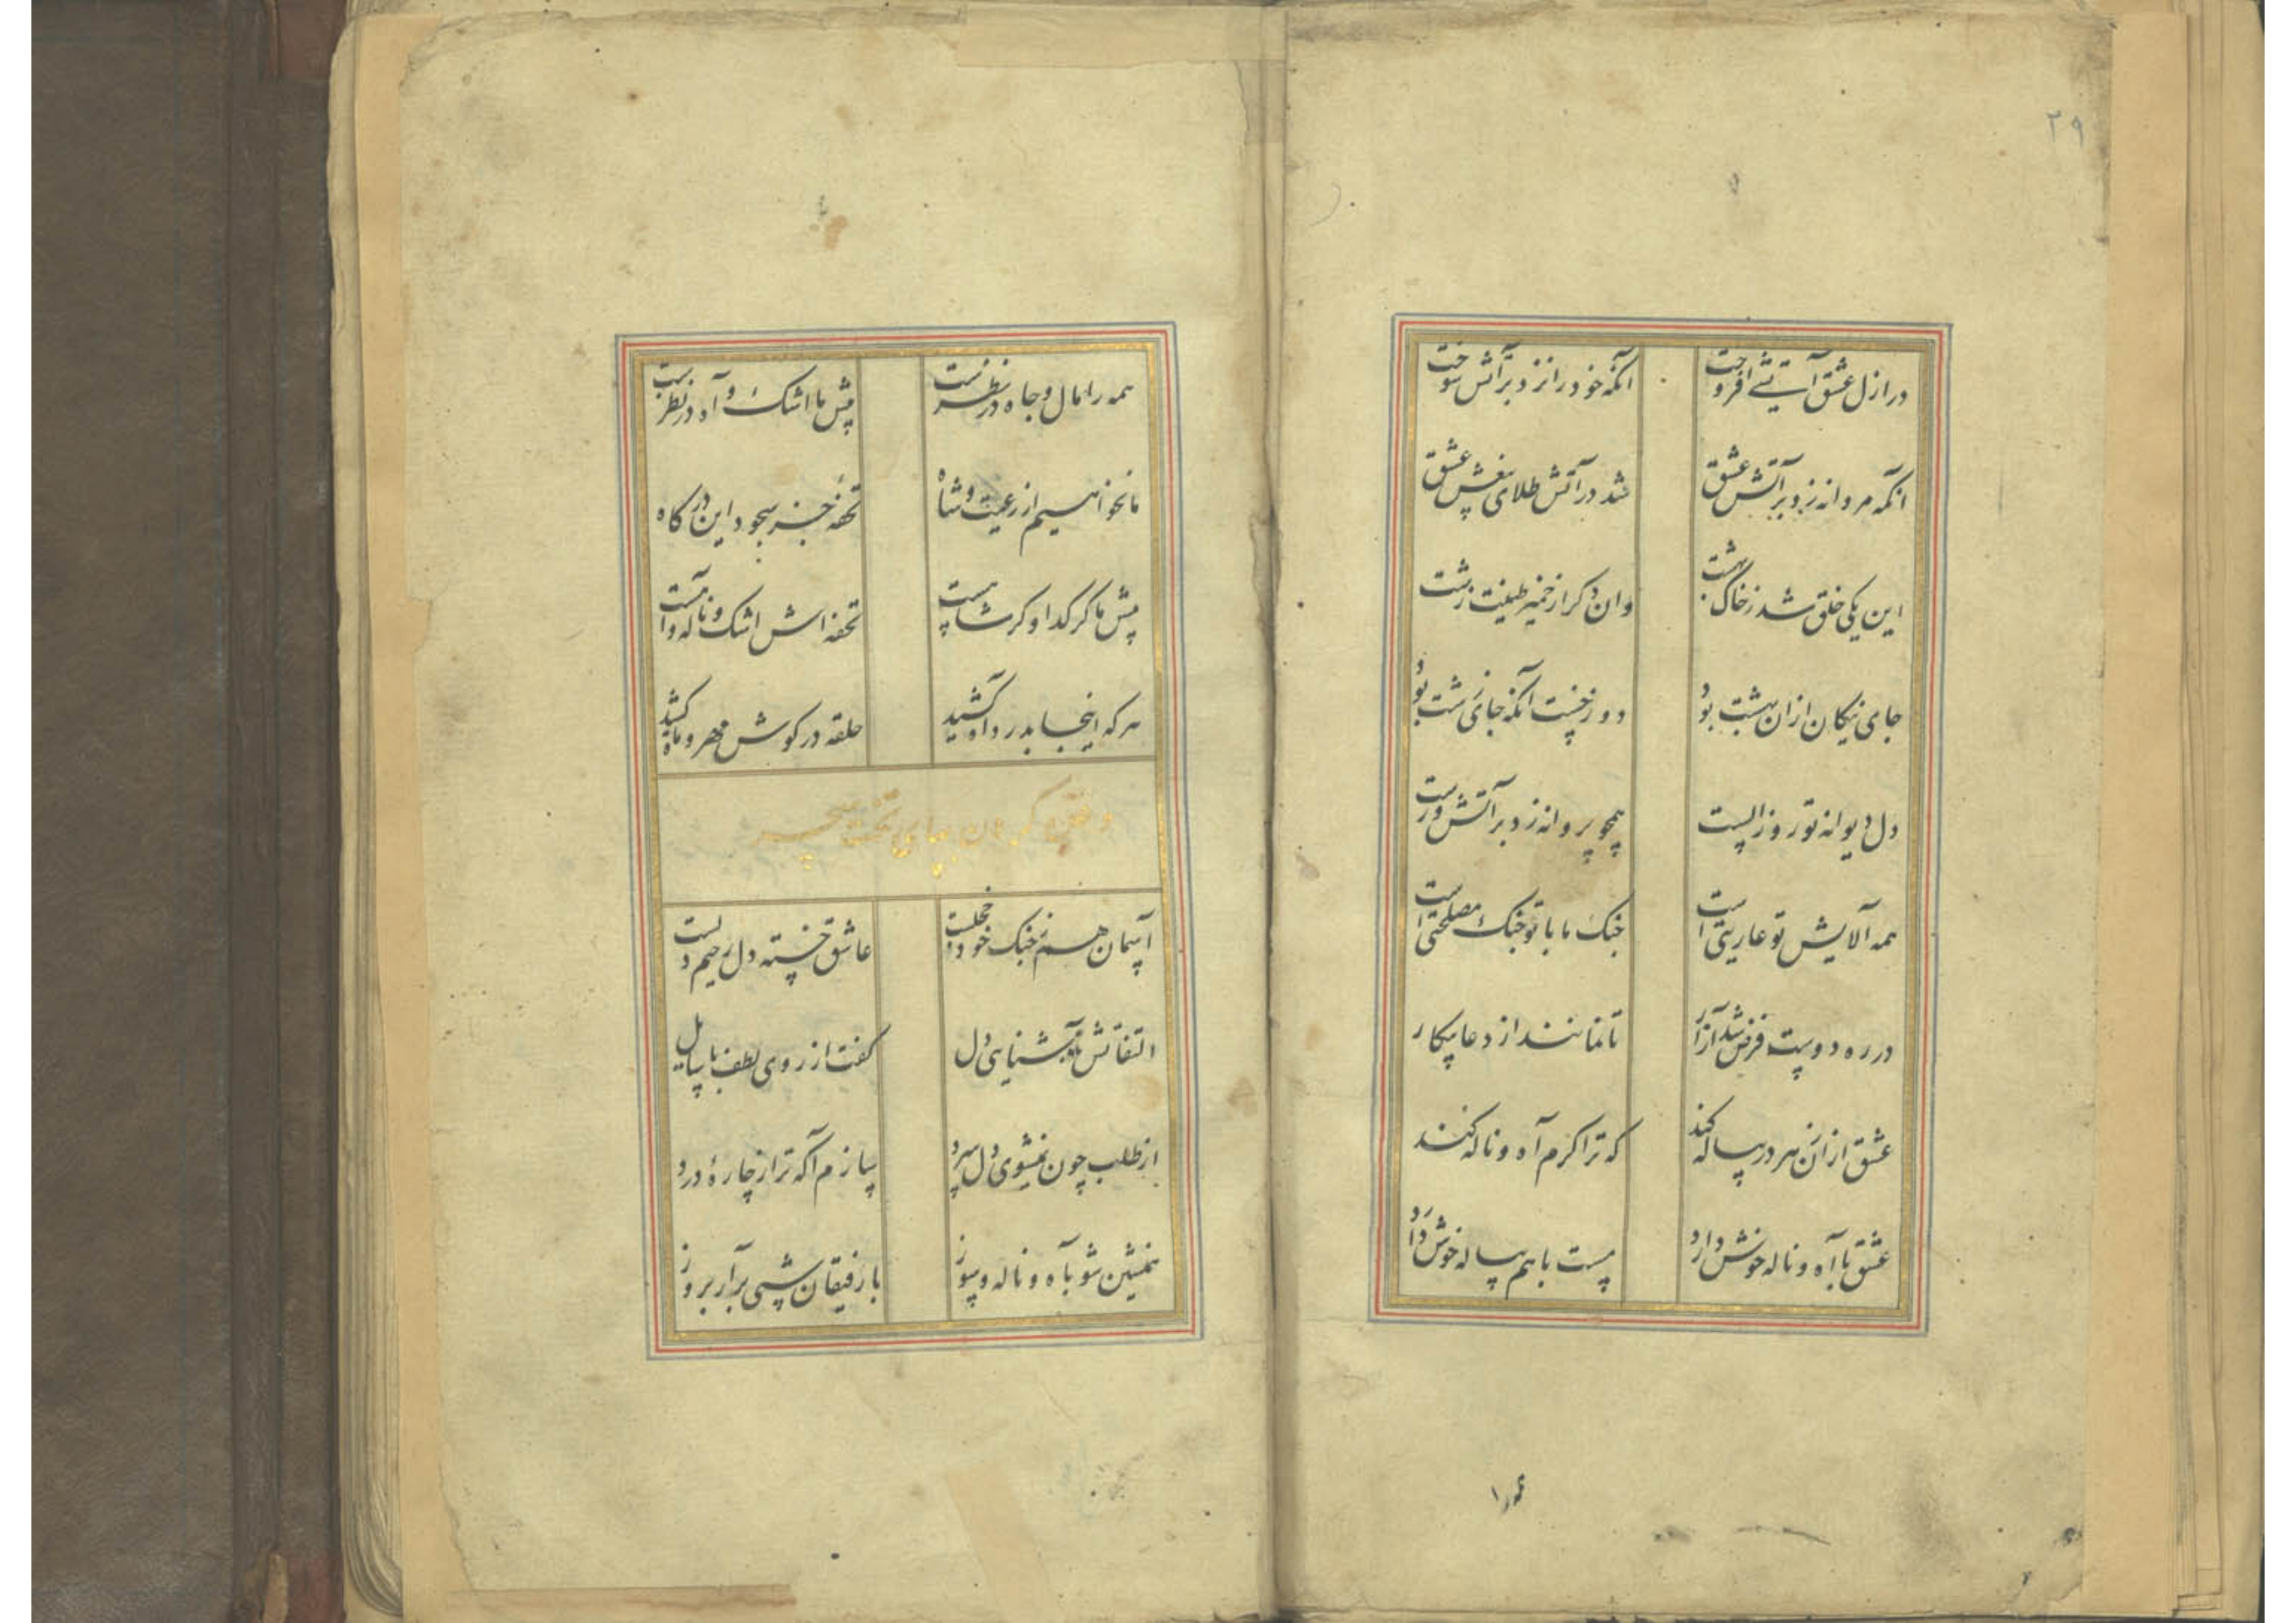 ۲۹
در ازل عشق آتشی افروخت
آنکه خود را نزد بر آتش سوخت
آنکه مردانه زد بر آتش عشق
شد در آتش طلای بیغش عشق
این یکی خلق شد ز خاک بهشت
وان دکر از خمیر طینت زشت
جای نیکان ازان بهشت بود
دوزخیست آنکه جای زشت بود
دل دیوانه تو روز الست
همچو پروانه زد بر آتش و رست
همه آلایش تو عاریتی است
جنک ما با تو جنک مصلحتی است
در ره دوست فرض شد آزار
تا نمانند از دعا بیکار
عشق ازان سر در پیاله کند
که ترا کرم آه و ناله کند
عشق با آه و ناله خوش دارد
مست با هم پیاله خوش دارد
همه را مال و جاه در نظرست
پیش ما اشک و آه در نظرست
ما نخواهیم از رعیت و شاه
تحفه جز سجود این درکاه
پیش ما کر کدا و کر شاهست
تحفه اش اشک و ناله و آهست
هر که اینجا بدرد آه کشید
حلقه در کوش مهر و ماه کشید
کردن بپای تخت
آسمان هم ز جنک خود خجلست
عاشق خسته دل رحیم دلست
التفاتش بآشنایی دل
کفت از روی لطف با سایل
از طلب چون نمیشوی دل سرد
سازم آکه ترا ز چارهٔ درد
همنشین شو بآه و ناله و سوز
با رفیقان شبی برآر بروز